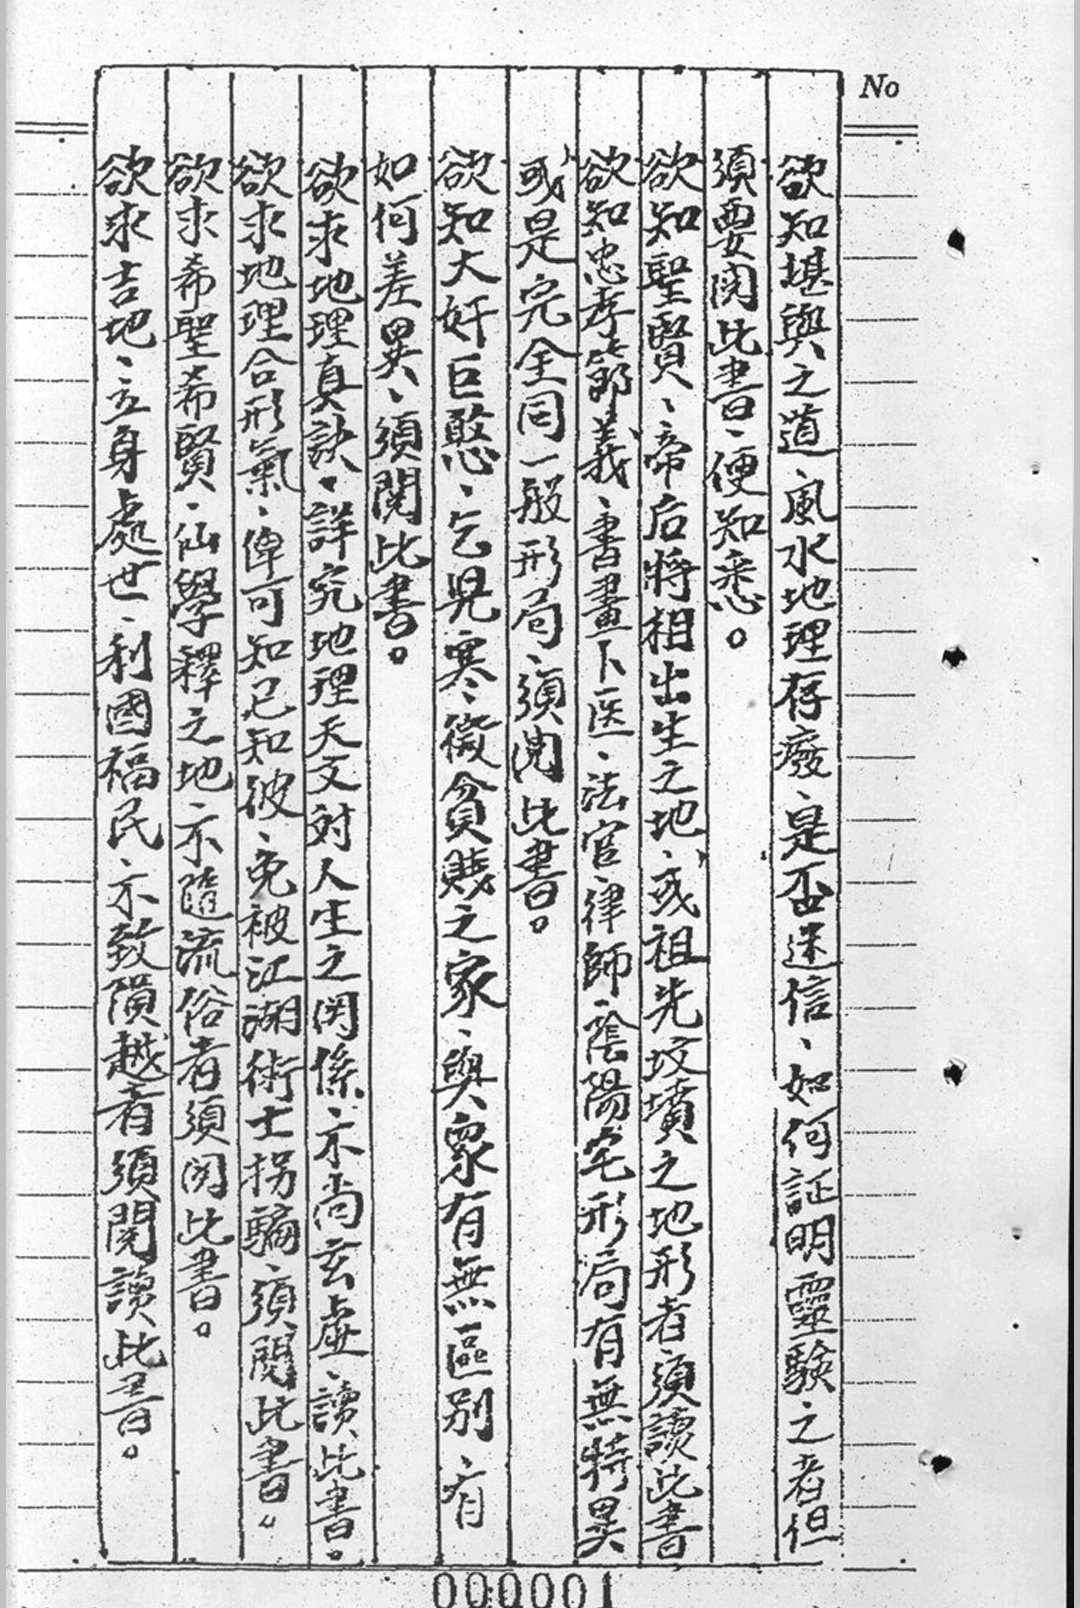 No
欲知堪輿之道、風水地理存廢、是否迷信、如何証明靈驗之者但
須要閱此書、便知悉。
欲知聖賢、帝后將相出生之地、或祖先坟墳之地形者、須讀此書
欲知忠孝節義、書畫卜医、法官、律師、陰陽宅形局有無特異
或是完全同一般形局、須閱此書。
欲知大奸巨憨、乞兒寒微貧賤之家、與眾有無區別、有
如何差異、須閱此書。
欲求地理真訣、詳究地理天文対人生之関係、不尚玄虛、讀此書。
欲求地理合形氣、俾可知己知彼、免被江湖術士拐騙、須閱此書。
欲求希聖希賢、仙學釋之地、不隨流俗者須閱此書。
欲求吉地、立身處世、利國福民、不致隕越者須閱讀此書。
000001